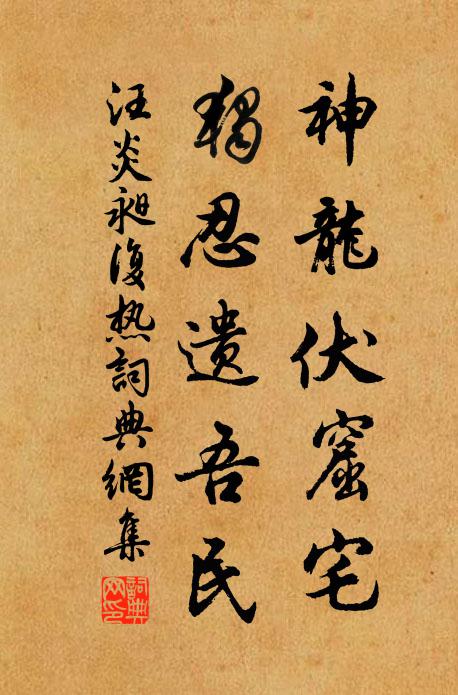 神龍伏窟宅
獨忍遺吾民
汪炎昶復热詞典網集
詞典網印